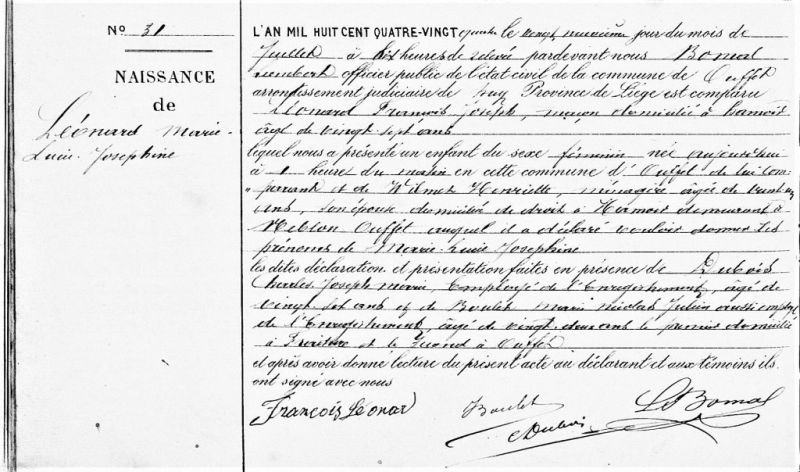 Nº 31
NAISSANCE
de
Léonard Marie-
Lucie-Josephine
L'AN MIL HUIT CENT QUATRE-VINGT quatre le vingt neuvième jour du mois de
Juillet à heures de relevée pardevant nous Bomal
Lambert officier public de l'état civil de la commune de Ouffet
arrondissement judiciaire de Huy Province de Liège est comparu
Léonard François Joseph, maçon domicilié à Hamoir
âgé de vingt sept ans
lequel nous a présenté un enfant du sexe féminin née aujourd'hui
à heures du matin en cette commune d'Ouffet de lui com-
parant et de Wilmet Henriette, ménagère âgée de
ans, son épouse domiciliée de droit à Hamoir demeurant à
Ouffet auquel il a déclaré vouloir donner les
prénoms de Marie-Lucie Josephine
les dites déclaration et présentation faites en présence de Dubois
Charles Joseph Marie, Employé de l'Enregistrement, âgé de
vingt sept ans et de Boulet Marie Nicolas Julien aussi employé
de l'Enregistrement, âgé de vingt-deux ans le premier domicilié
à et le second à Ouffet
et après avoir donné lecture du présent acte au déclarant et aux témoins ils
ont signé avec nous
François Léonar Boulet Lt Bomal
CDubois